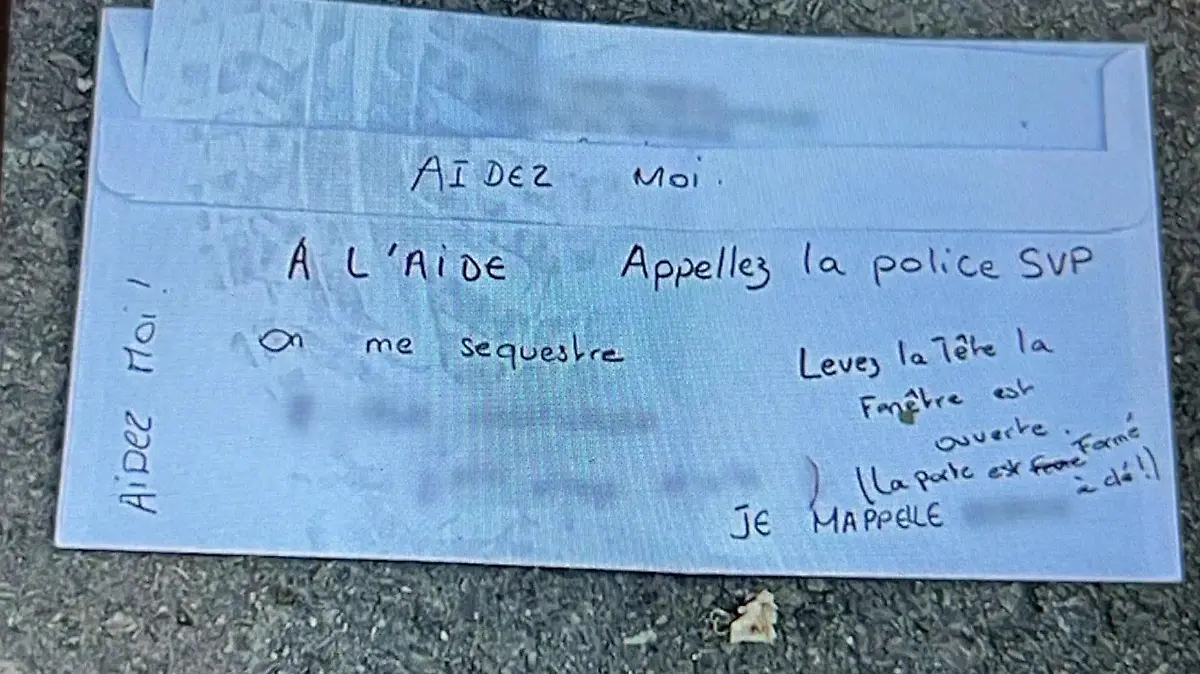 AIDEZ MOi.
A L'AiDE Appellez la police SVP
On me sequestre
Levez la Tête la
Fenêtre est
ouverte.
(La porte est Fermé
à clé!)
JE MAPPELLE
AiDEZ Moi!